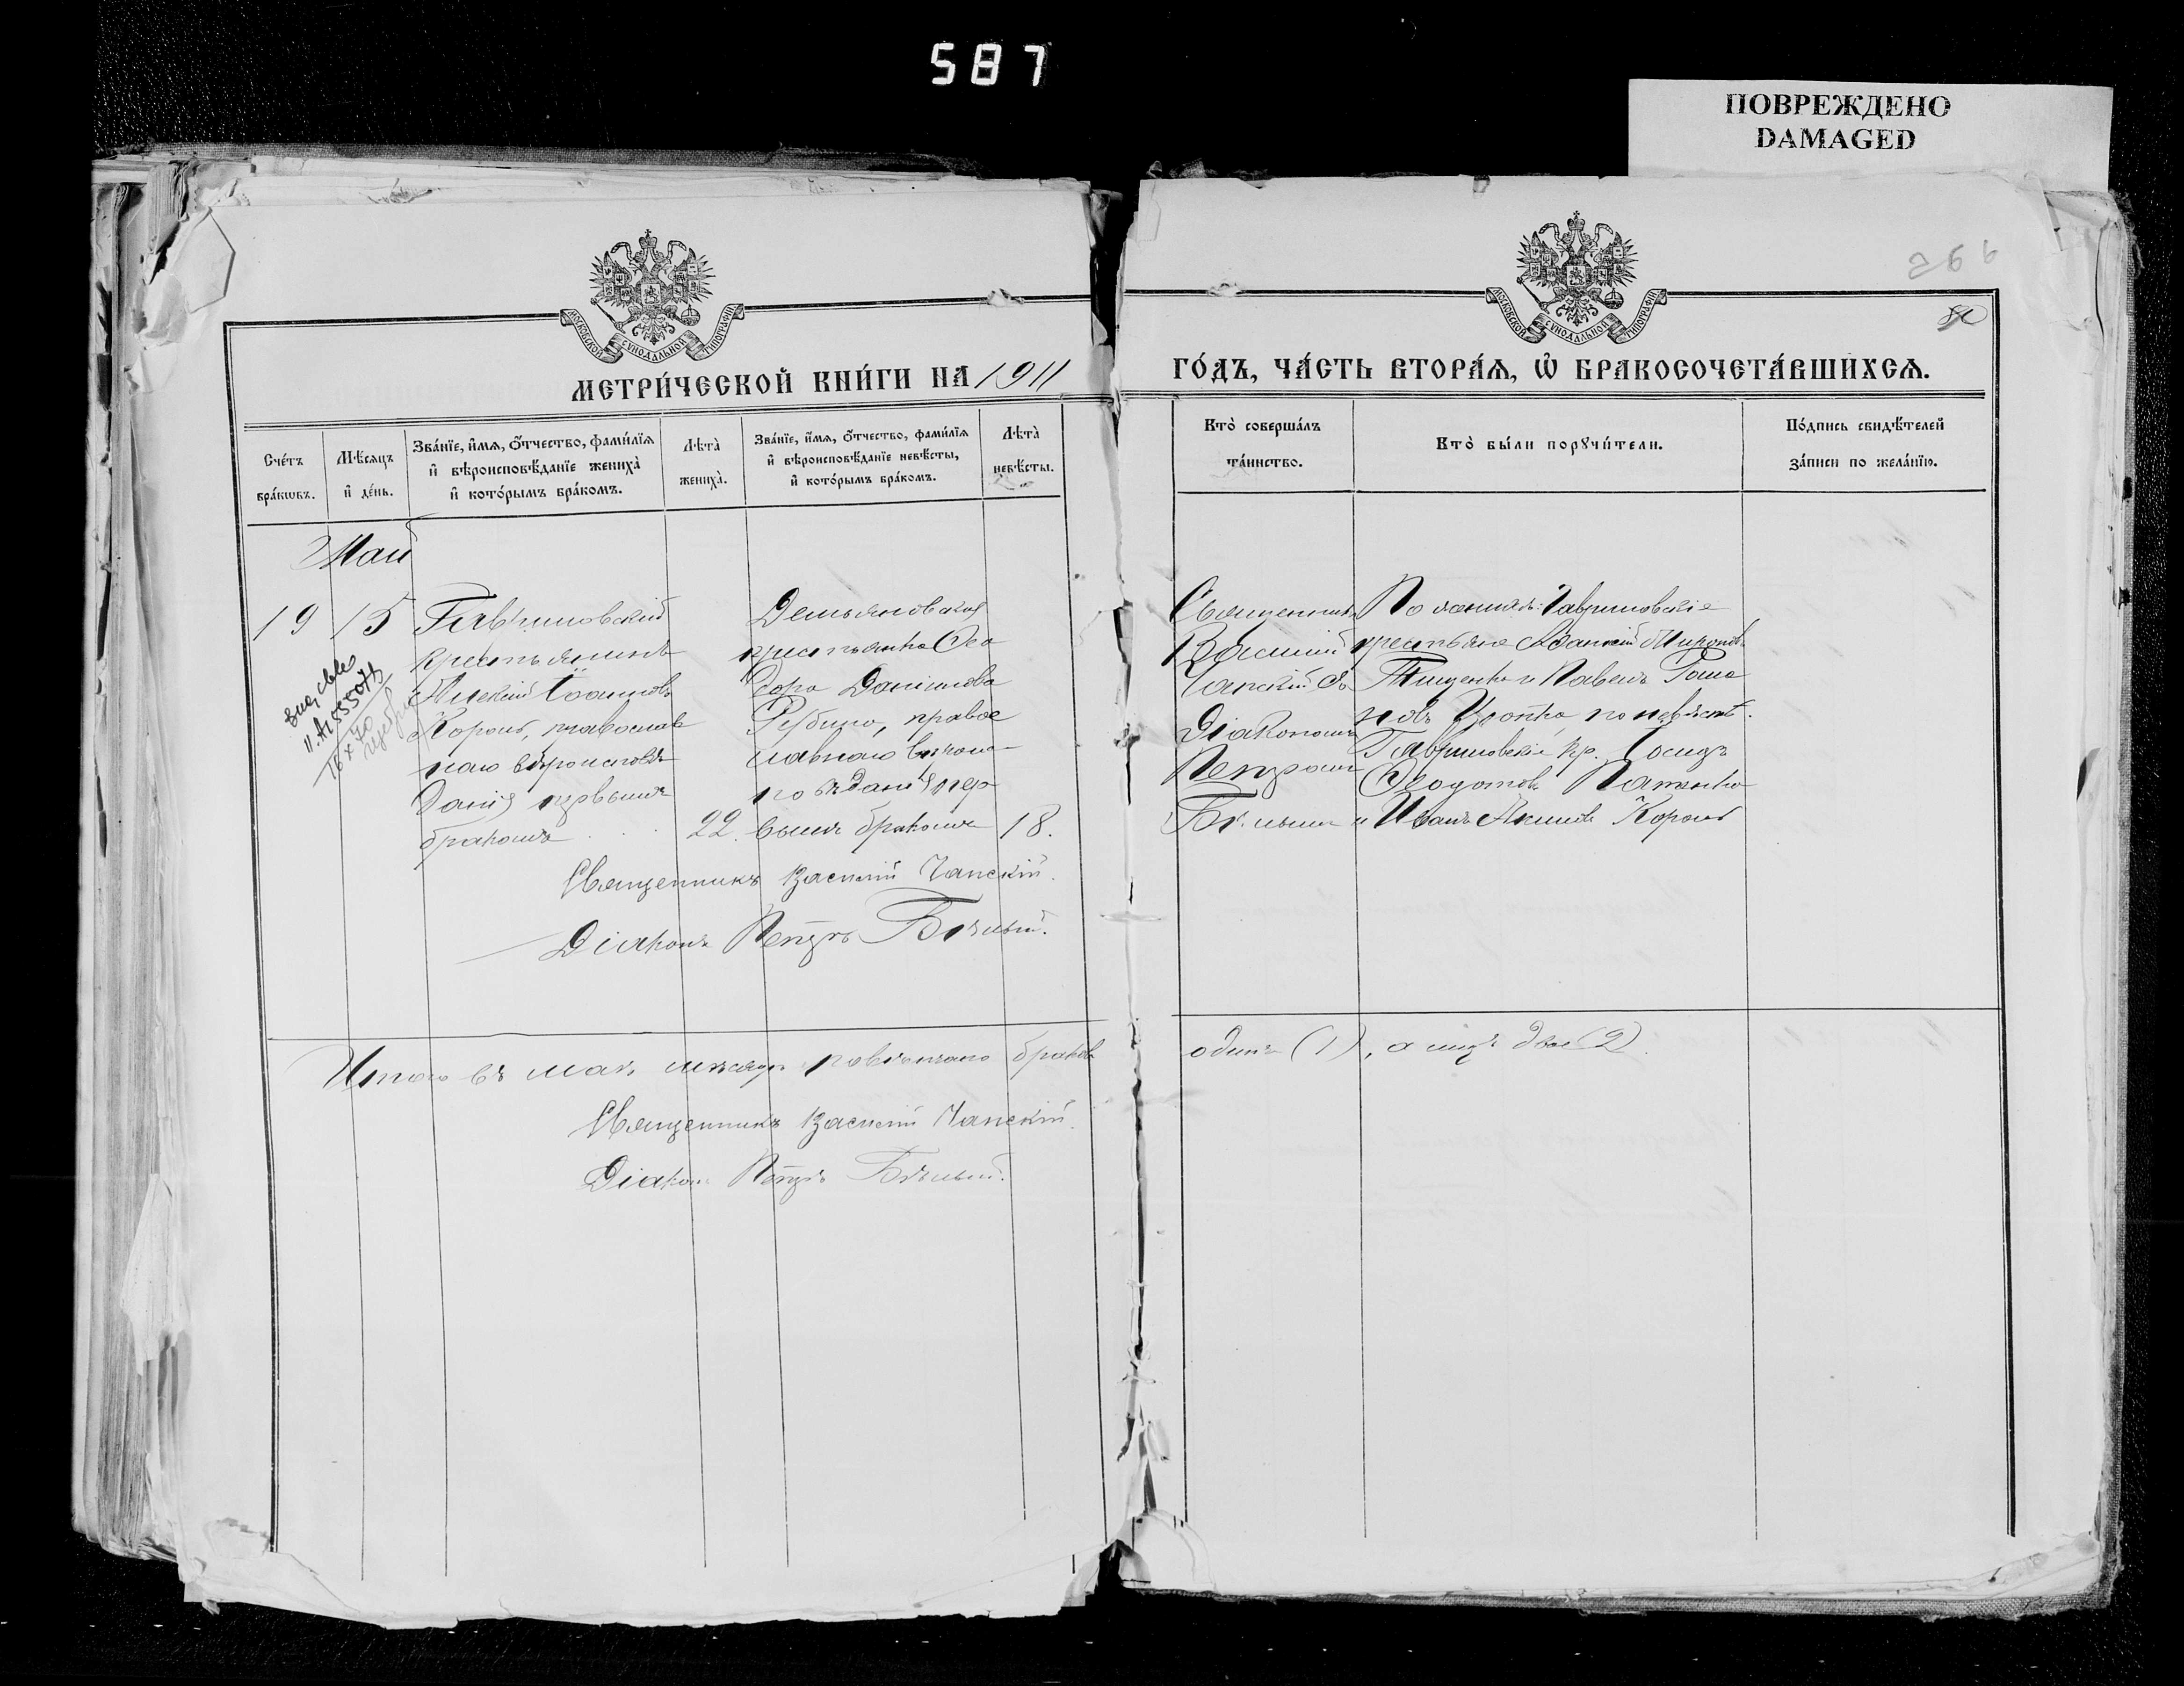 587
ПОВРЕЖДЕНО
DAMAGED
266
МОСКОВСКОЙ СУНОДАЛЬНОЙ ТИПОГРАФІИ
МОСКОВСКОЙ СУНОДАЛЬНОЙ ТИПОГРАФІИ
МЕТРИ́ЧЕСКОЙ КНИ́ГИ НА 1911
ГО́ДЪ, ЧА́СТЬ ВТОРА́Ѧ, Ѡ҆ БРАКОСОЧЕТА́ВШИХСѦ.
Сче́тъ
бра́кѡвъ.
Мѣ́сѧцъ
и҆ де́нь.
Зва́нїе, и҆́мѧ, ѻ҆́тчество, фами́лїѧ
и҆ вѣроисповѣ́данїе жениха̀
и҆ кото́рымъ бра́комъ.
Лѣ́та̀
жениха̀.
Зва́нїе, и҆́мѧ, ѻ҆́тчество, фами́лїѧ
и҆ вѣроисповѣ́данїе невѣ́сты,
и҆ кото́рымъ бра́комъ.
Лѣ́та̀
невѣ́сты.
Кто̀ соверша́лъ
та́инство.
Кто̀ бы́ли порꙋчи́тели.
По́дпись свидѣ́телей
за́писи по жела́нїю.
Май
19
15
Гавриловскій
крестьянинъ
Алексій Іоанновъ
Король, православ
наго вѣроисповѣ
данія первымъ
бракомъ
22.
Демьяновская
крестьянка Ѳео
дора Даніилова
православнаго вѣроис
повѣданія пер
вымъ бракомъ
18.
Священникъ
Василій
Чапскій съ
Діакономъ
Петромъ
Бѣлымъ
По женихѣ: Гавриловскіе
крестьяне Мироновъ
Тищенко и Павелъ Рома
новъ по невѣстѣ:
Гавриловскіе кр. Іосифъ
Ѳеодотовъ
и Иванъ Акимовъ Король
Священникъ Василій Чапскій.
Діаконъ Петръ Бѣлый.
Итого въ маѣ мѣсяцѣ повѣнчано браковъ
одинъ (1), а лицъ двое (2).
Священникъ Василій Чапскій.
Діаконъ Петръ Бѣлый.